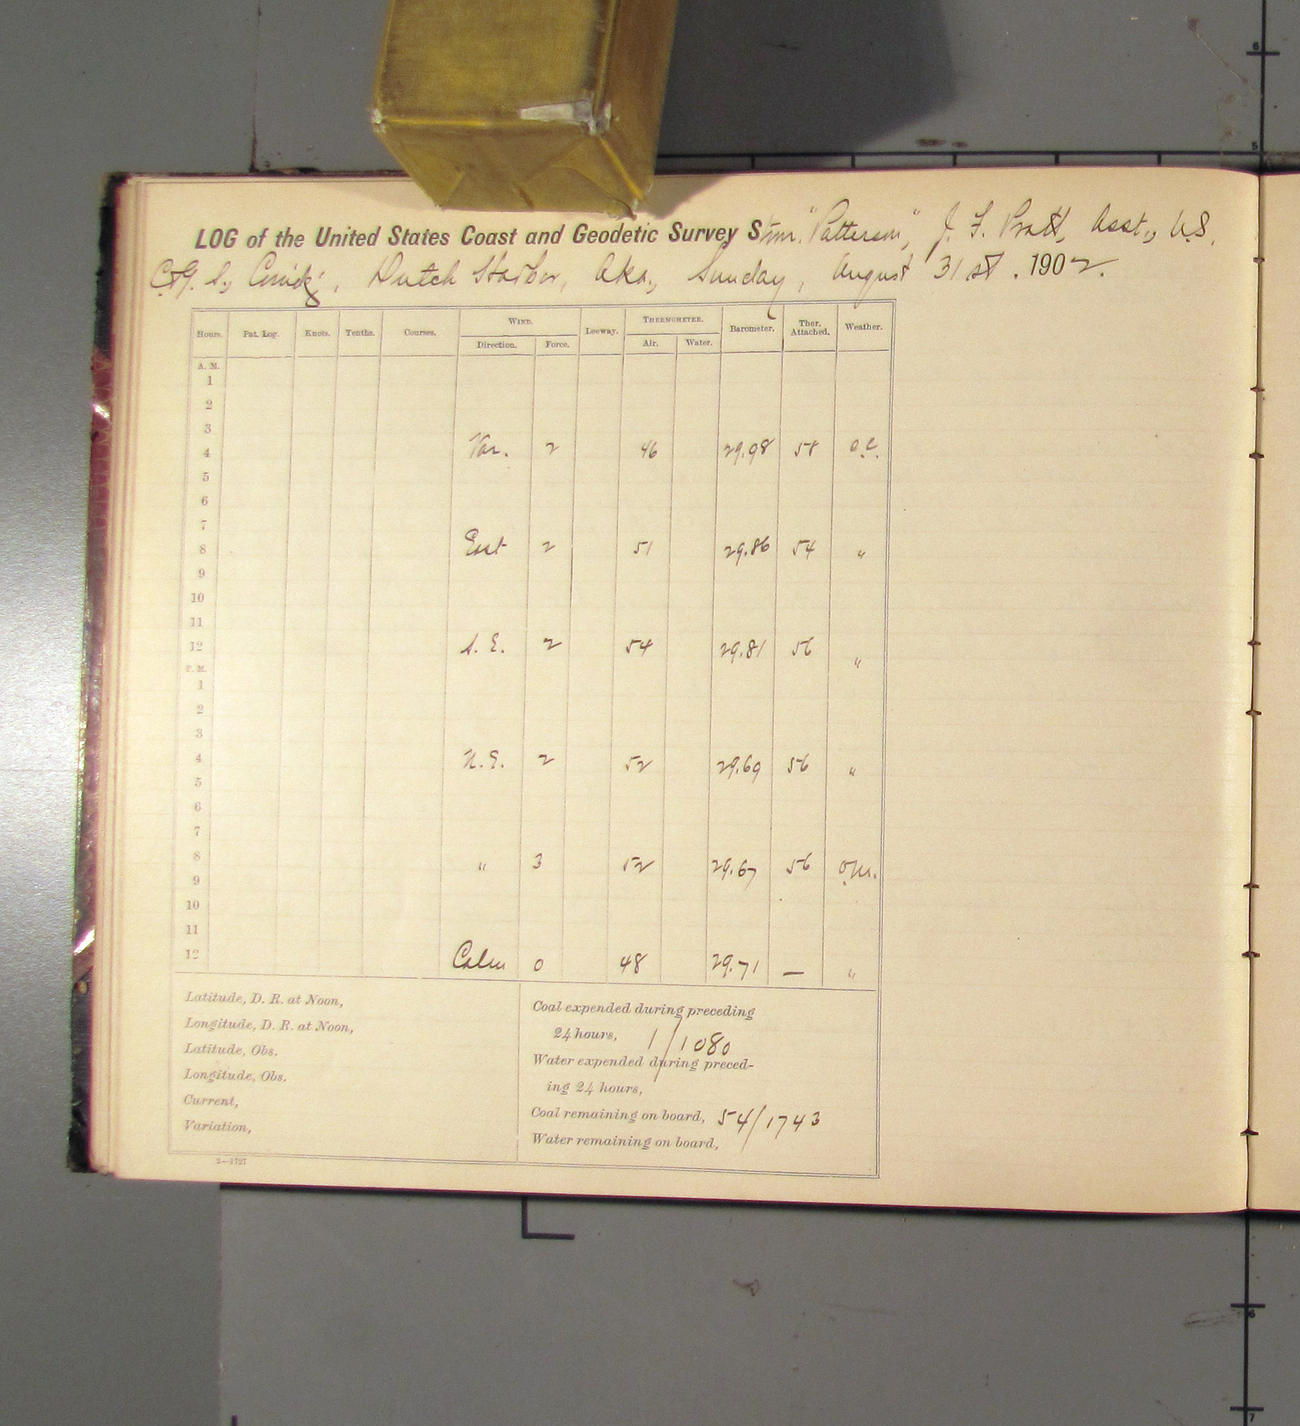 LOG of the United States Coast and Geodetic Survey Stmr. "Patterson", J. F. Pratt, Asst., U.S.
C.&G. S., Comdg., Dutch Harbor, Aka., Sunday, August 31st. 1902.
Hours. Pat. Log. Knots. Tenths. Courses. WIND. Leeway. THERMOMETER. Barometer. Ther. Attached. Weather.
Direction. Force. Air. Water.
A. M.
1
2
3
4 Var. 2 46 29.98 58 o.c.
5
6
7
8 East 2 51 29.86 54 "
9
10
11
12 S. E. 2 54 29.81 56 "
P. M.
1
2
3
4 N. E. 2 52 29.69 56 "
5
6
7
8 " 3 52 29.67 56 o.m.
9
10
11
12 Calm 0 48 29.71 — "
Latitude, D. R. at Noon,
Longitude, D. R. at Noon,
Latitude, Obs.
Longitude, Obs.
Current,
Variation,
Coal expended during preceding
24 hours, 1/1080
Water expended during preced-
ing 24 hours,
Coal remaining on board, 54/1743
Water remaining on board,
2—1727
6
5
6
7